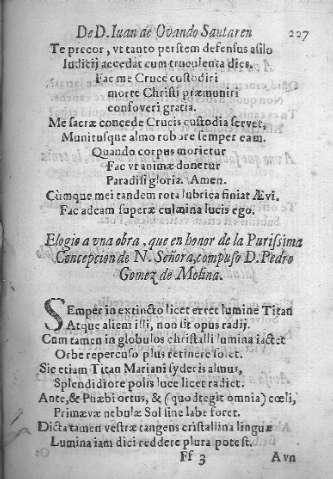 De D. Iuan de Ovando Santaren 227
Te precor, vt tanto perstem defensus asilo
Iudicij accedat cum truculenta dies.
Fac me Cruce custodiri
morte Christi præmuniri
confoveri gratia.
Me sacræ concede Crucis custodia servet,
Munitusque almo robore semper eam.
Quando corpus morietur
Fac vt animæ donetur
Paradisi gloria. Amen.
Cùmque mei tandem rota lubrica finiat Ævi.
Fac adeam superæ culmina lucis ego.
Elogio a vna obra, que en honor de la Purissima
Concepcion de N. Señora, compuso D. Pedro
Gomez de Molina.
SEmper in extincto licet erret lumine Titan
Atque aliem illi, non sit opus radij.
Cum tamen in globulos christalli lumina iactet
Orbe repercuso plus retinere solet.
Sic etiam Titan Mariani syderis almus,
Splendidiore polis luce licet radiet.
Ante, & Phæbi ortus, & (quo dtegit omnia) cœli,
Primævæ nebulæ Sol sine labe foret.
Dicta tamen vestræ tangens cristallina linguæ
Lumina iam dici reddere plura potest.
Ff 3 Avn